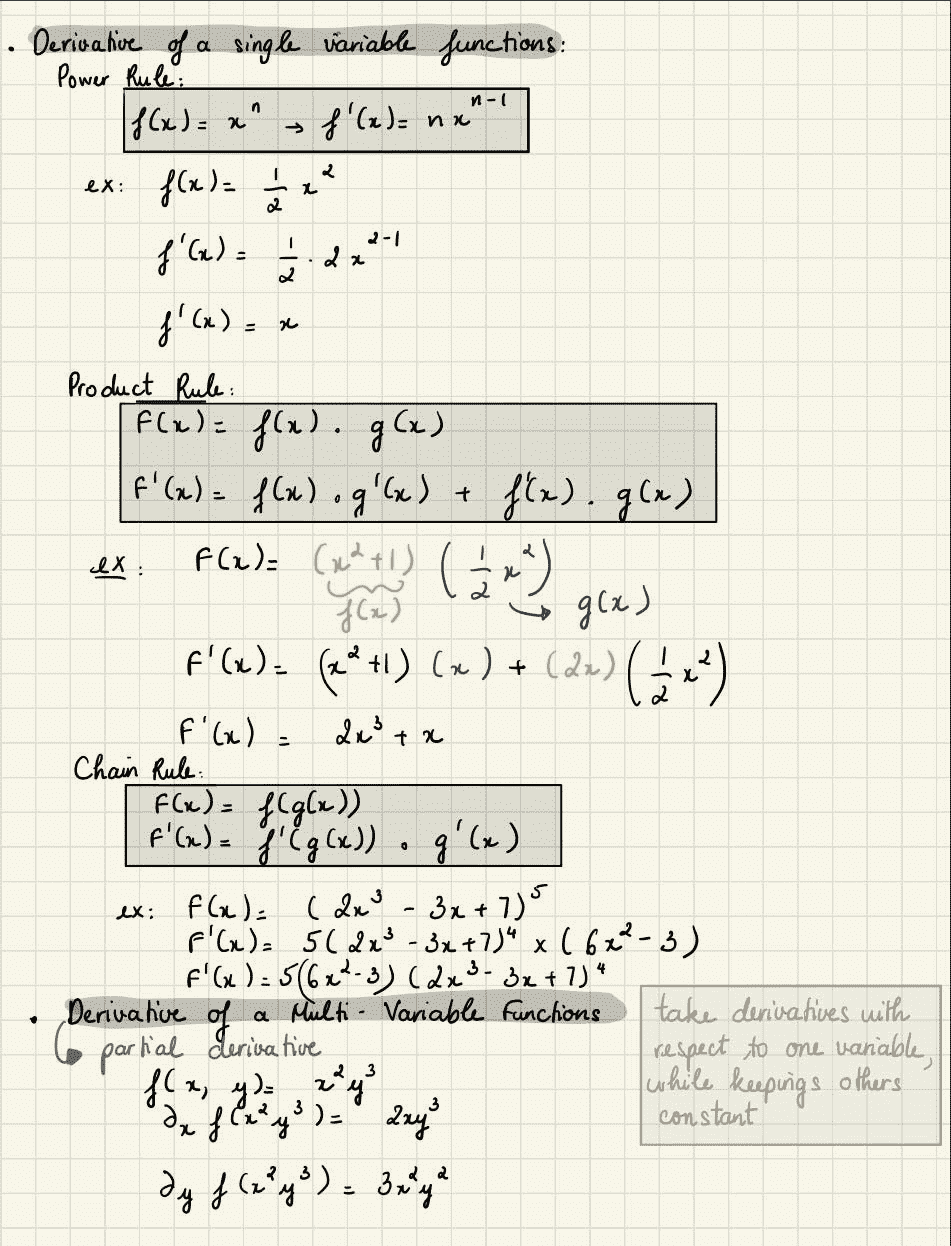 . Derivative of a single variable functions:
Power Rule:
f(x) = xⁿ → f'(x) = n xⁿ⁻¹
ex: f(x) = 1/2 x²
f'(x) = 1/2 · 2 x²⁻¹
f'(x) = x
Product Rule:
F(x) = f(x) . g(x)
F'(x) = f(x) . g'(x) + f'(x) . g(x)
ex: F(x) = (x²+1) (1/2 x²)
f(x) → g(x)
F'(x) = (x²+1) (x) + (2x) (1/2 x²)
F'(x) = 2x³ + x
Chain Rule:
F(x) = f(g(x))
F'(x) = f'(g(x)) . g'(x)
ex: F(x) = (2x³ - 3x + 7)⁵
F'(x) = 5(2x³ - 3x + 7)⁴ x (6x² - 3)
F'(x) = 5(6x² - 3) (2x³ - 3x + 7)⁴
. Derivative of a Multi-Variable Functions
partial derivative
f(x, y) = x²y³
∂x f(x²y³) = 2xy³
∂y f(x²y³) = 3x²y²
take derivatives with
respect to one variable,
while keepings others
constant